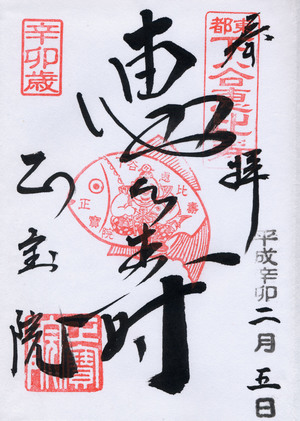 奉拝
恵比寿
正宝院
平成辛卯二月五日
辛卯歳
東都
下谷
比壽
正寶院